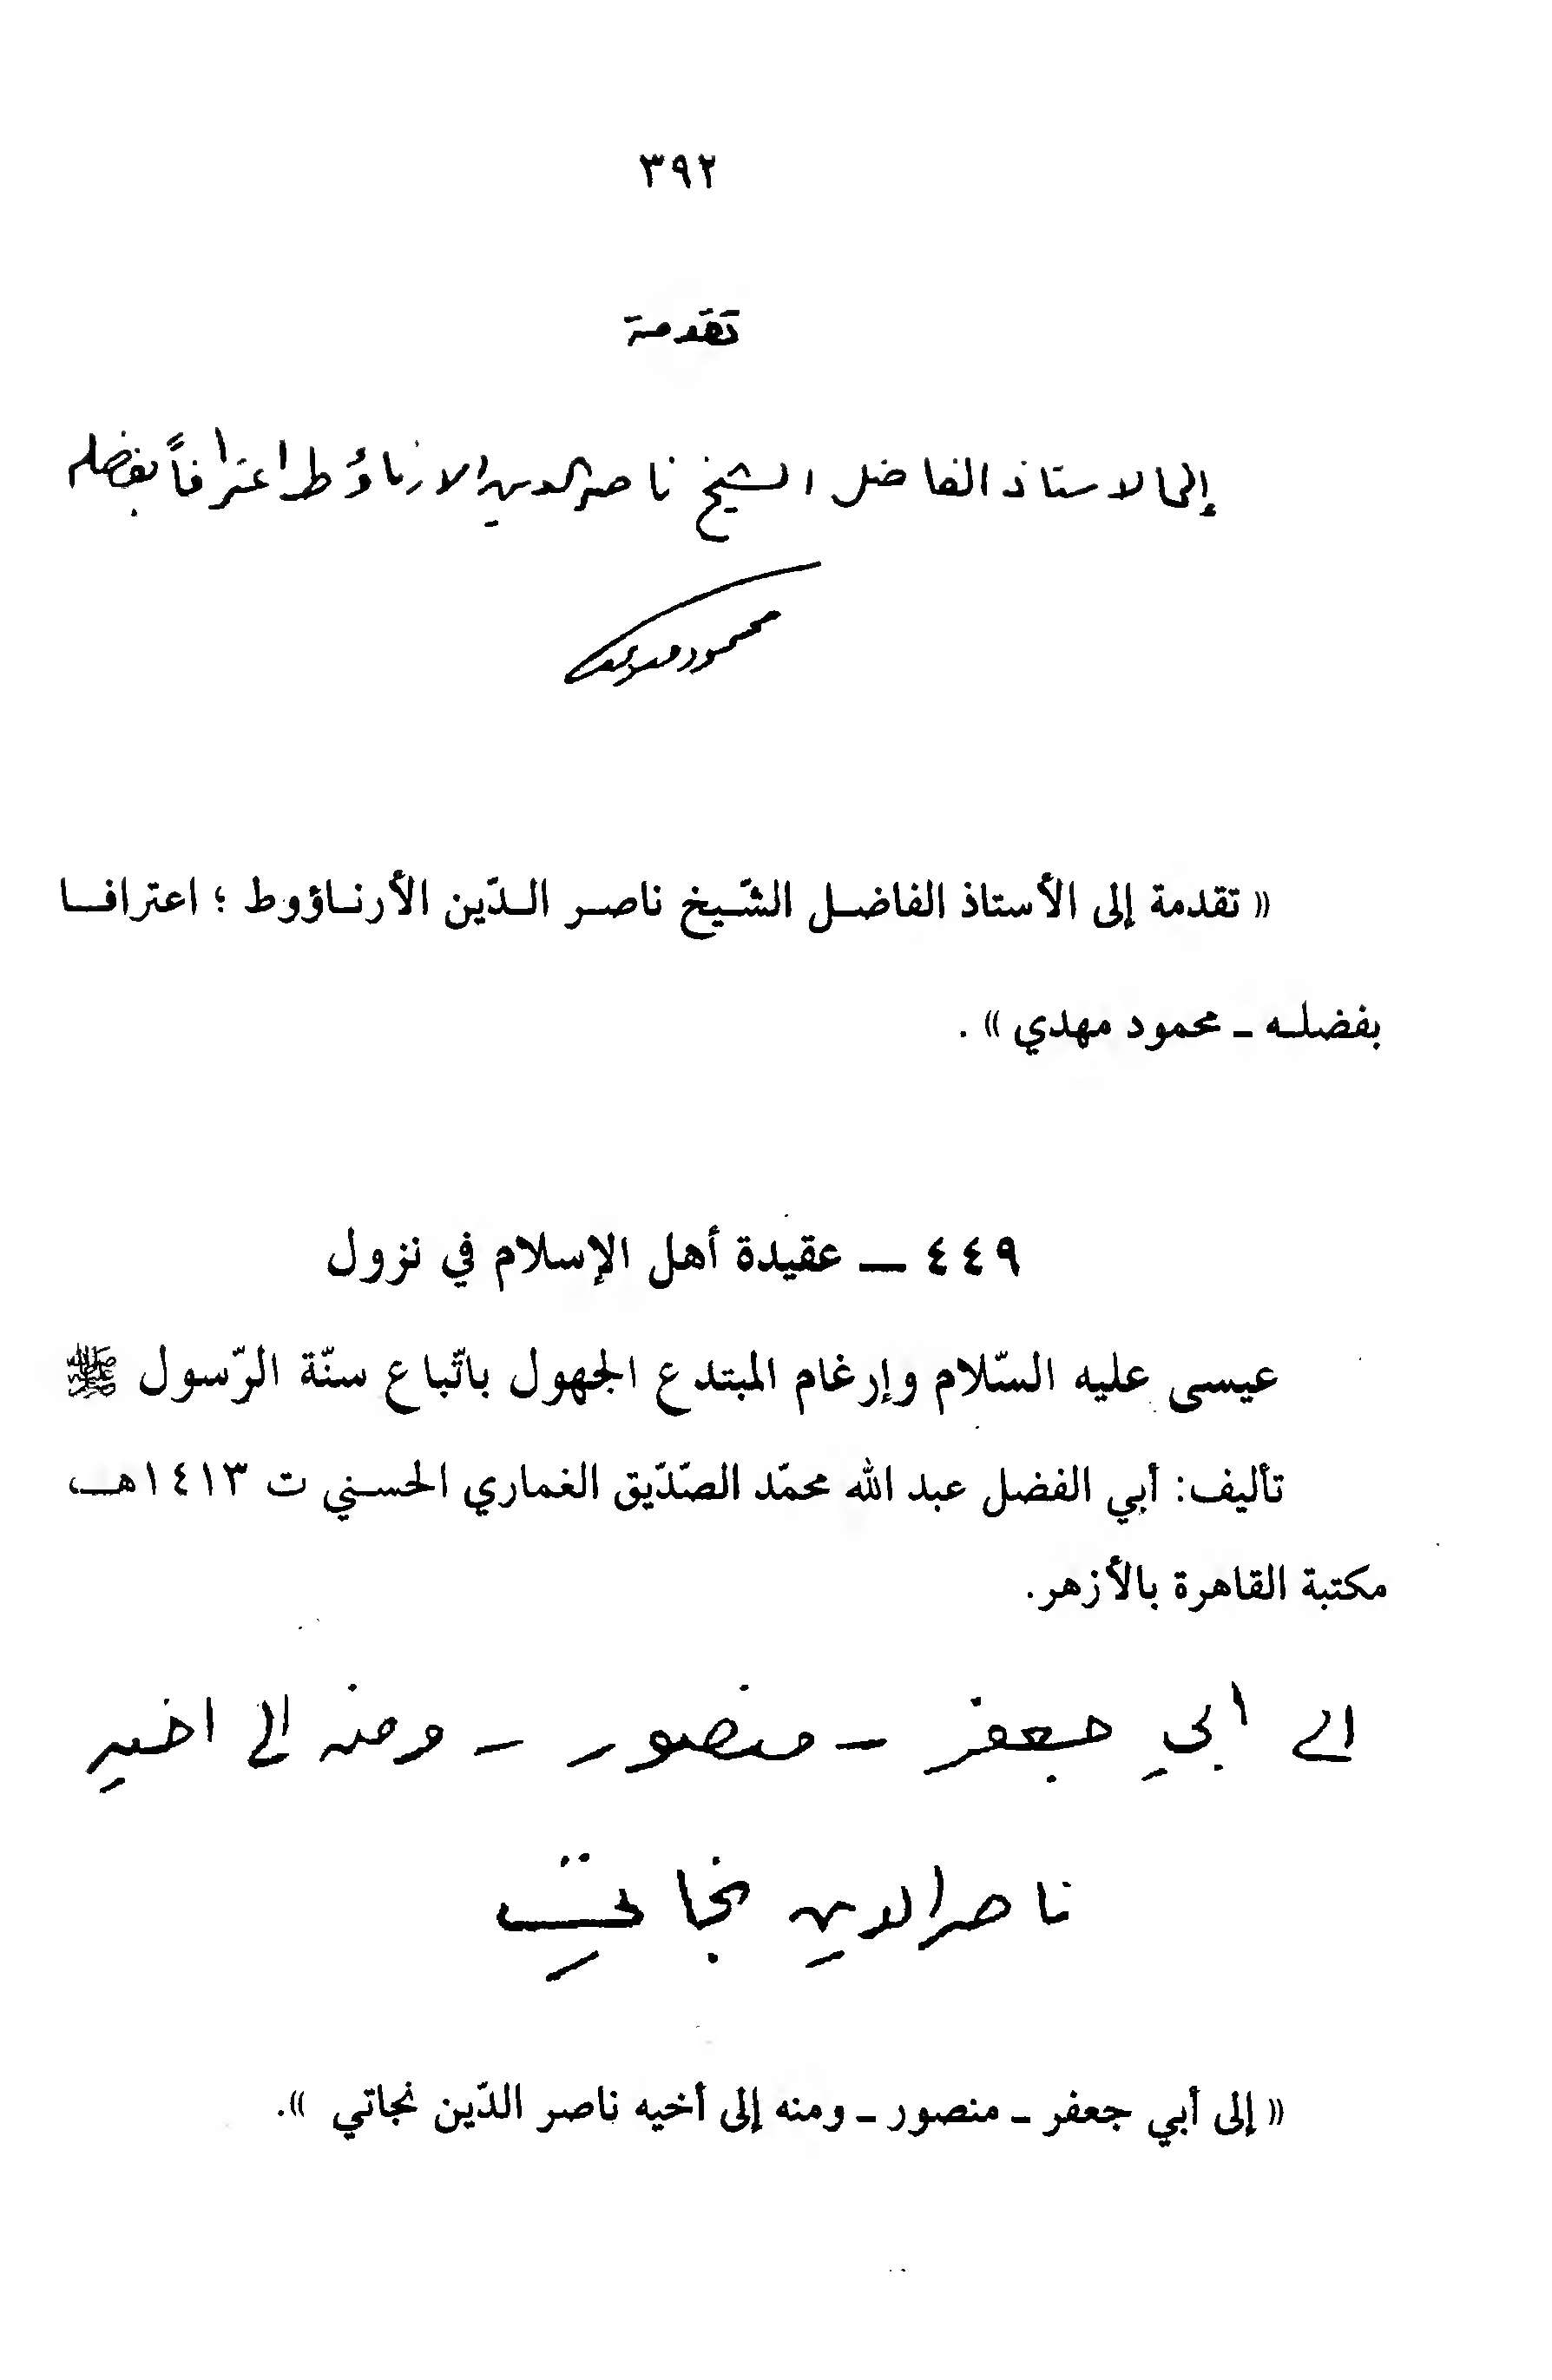 ٣٩٢
تقدمة
إلى الاستاذ الفاضل الشيخ ناصر الدين الارناؤط اعترافاً بفضله
محمود مهدي
« تقدمة إلى الأستاذ الفاضل الشّيخ ناصر الدّين الأرناؤوط ؛ اعترافا
بفضله – محمود مهدي » .
٤٤٩ – عقيدة أهل الإسلام في نزول
عيسى عليه السّلام وإرغام المبتدع الجهول باتّباع سنّة الرّسول ﷺ
تأليف: أبي الفضل عبد الله محمّد الصّدّيق الغماري الحسني ت ١٤١٣هـ
مكتبة القاهرة بالأزهر.
الى ابي جعفر – منصور – ومنه الى اخيه
ناصر الدين نجاتي
« إلى أبي جعفر – منصور – ومنه إلى أخيه ناصر الدّين نجاتي ».